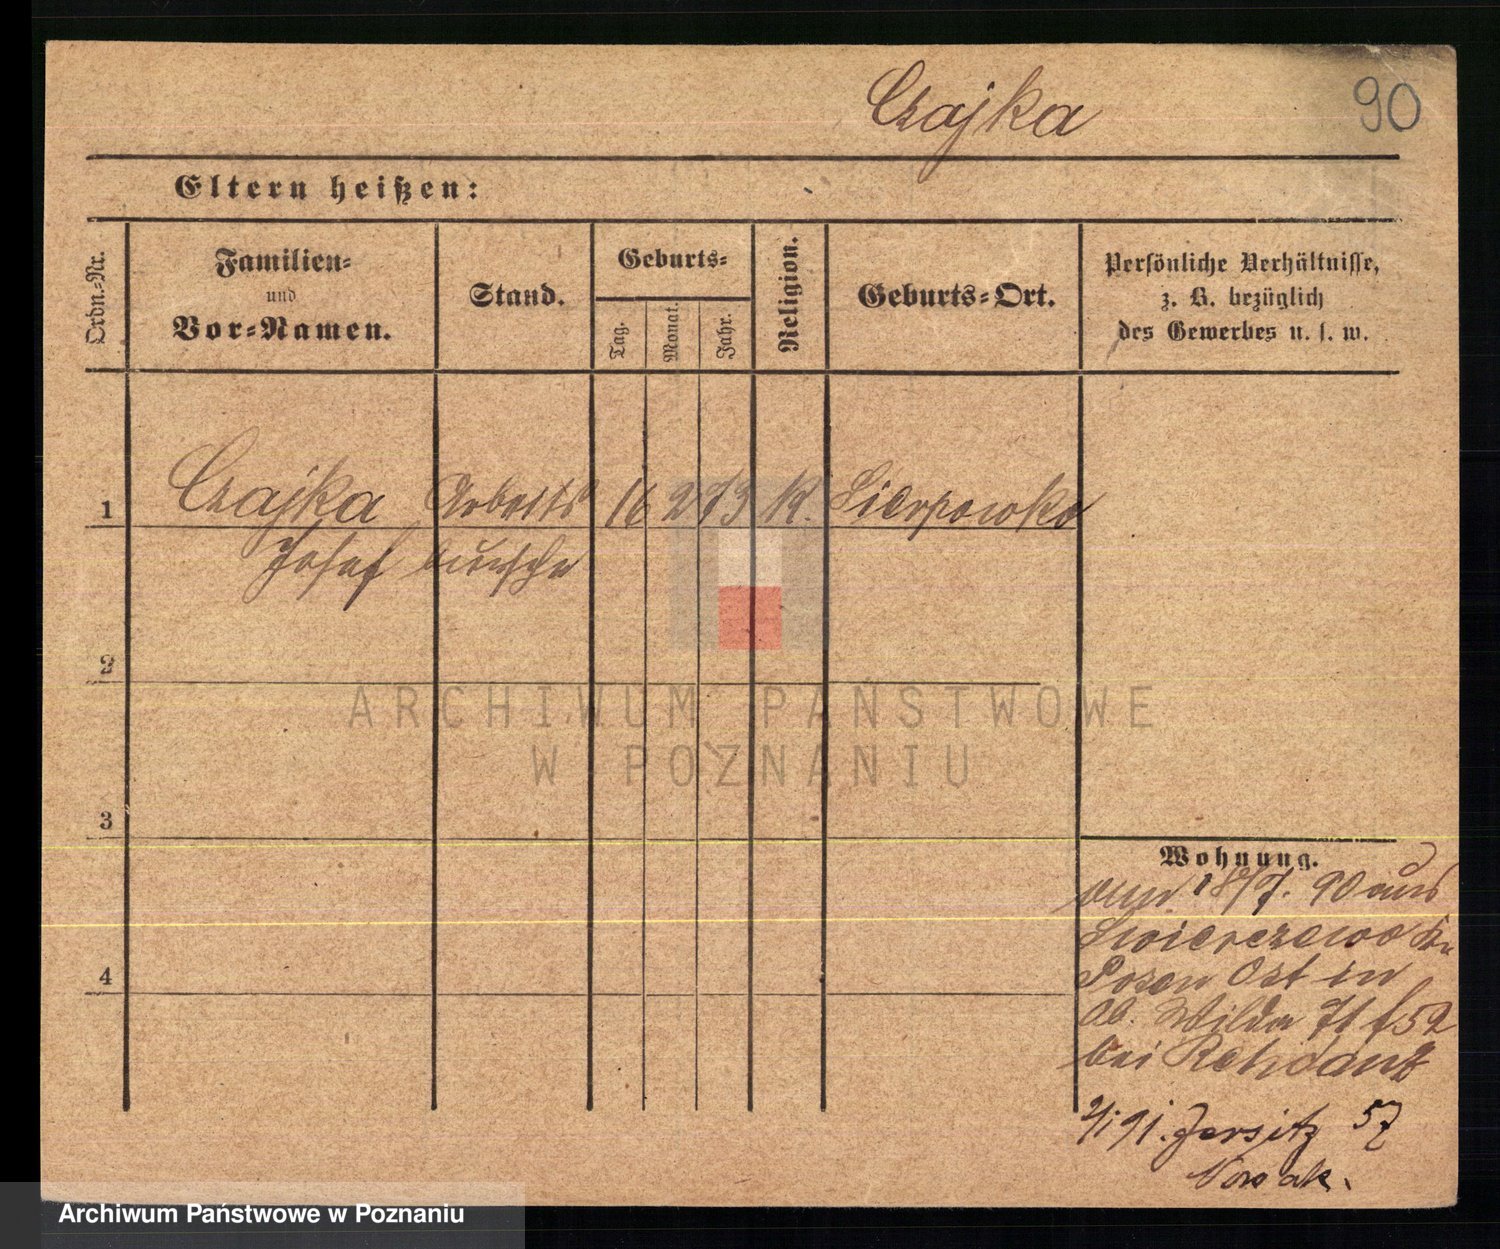 Czajka
90
Eltern heißen:
Ordn.-Nr.
Familien- und Vor-Namen.
Stand.
Geburts-
Tag.
Monat.
Jahr.
Religion.
Geburts-Ort.
Persönliche Verhältnisse,
z. B. bezüglich
des Gewerbes u. s. w.
1
Czajka Arbeits 16 2 73 K. Sierpowko
Josef bursche
2
ARCHIWUM PAŃSTWOWE
W POZNANIU
3
Wohnung.
am 18/7. 90 aus
Swierczewo Kr.
Posen Ost in
Ob. Wilda 71 f 52
bei Rehdanz
4
2/1 91. Jersitz 57
Nowak.
Archiwum Państwowe w Poznaniu